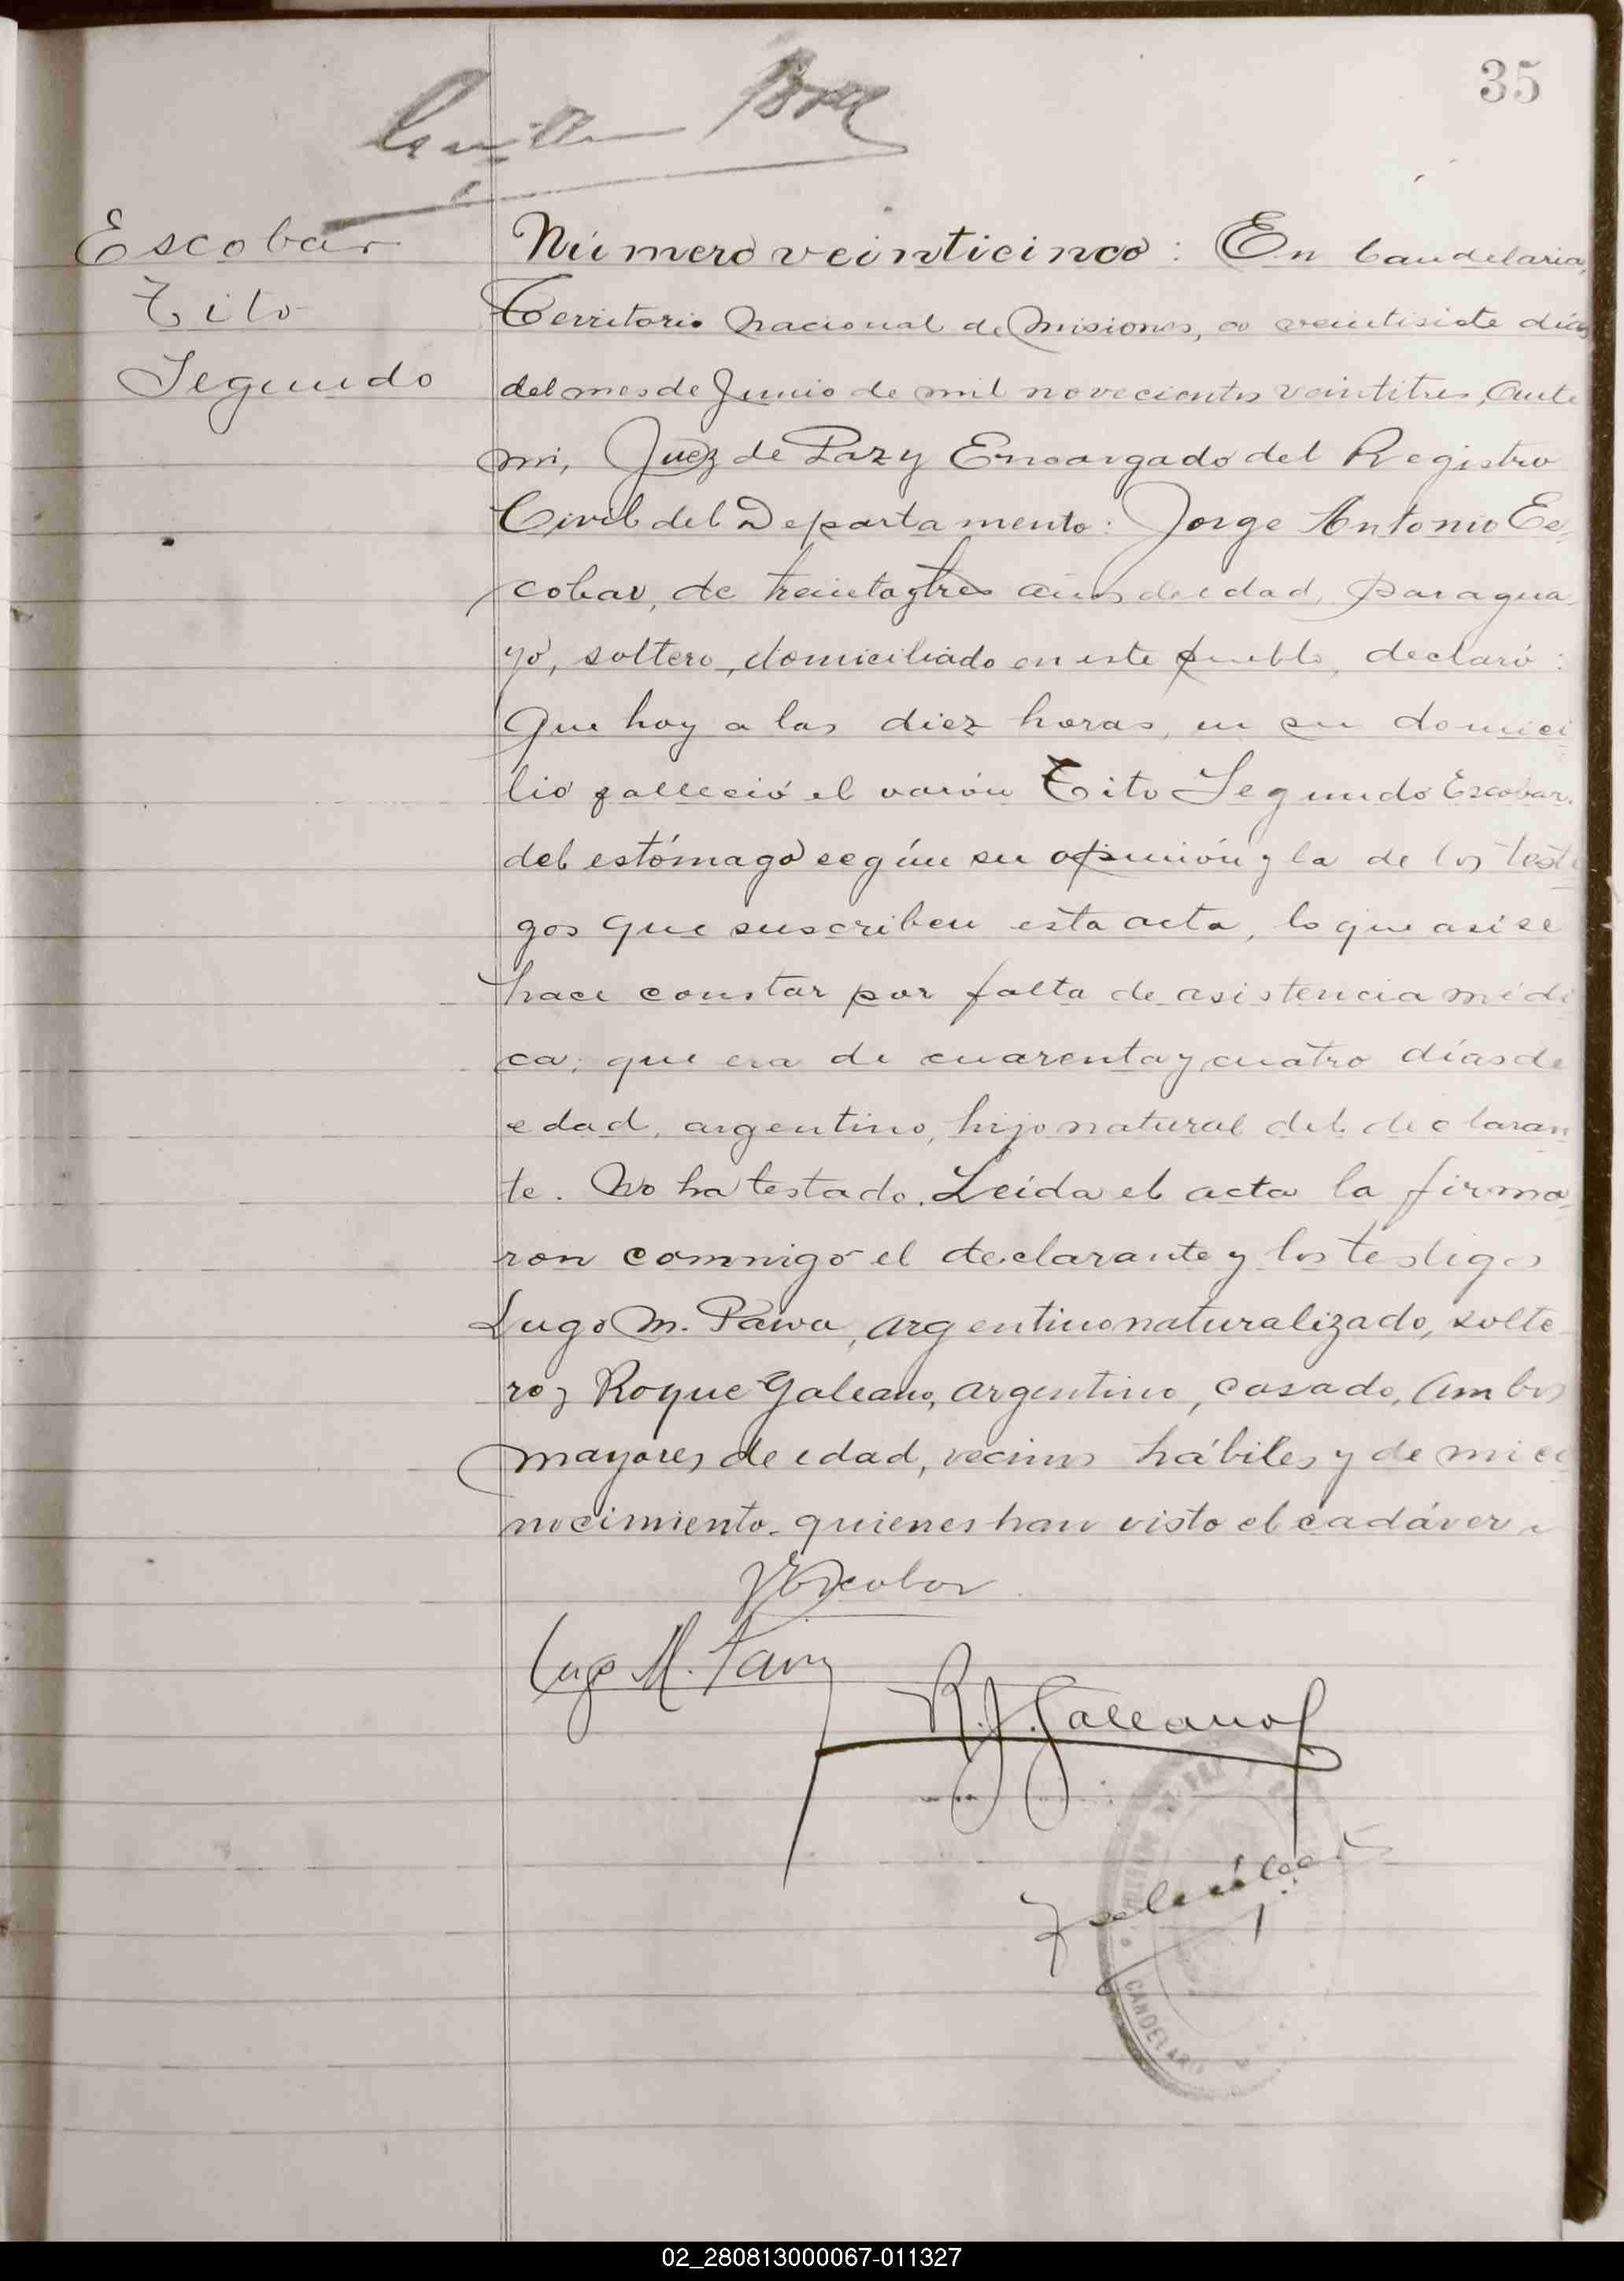 35
Escobar
Tito
Segundo
Número veinticinco: En Candelaria,
Territorio Nacional de Misiones, a veintisiete días
del mes de Junio de mil novecientos veintitres, ante
mi, Juez de Paz y Encargado del Registro
Civil del Departamento: Jorge Antonio Es-
cobar, de treintaytres años de edad, Paragua-
yo, soltero, domiciliado en este pueblo, declaró:
Que hoy a las diez horas, en su domici-
lio falleció el varón Tito Segundo Escobar.
del estómago según su opinión y la de los testi
gos que suscriben esta acta, lo que asi se
hace constar por falta de asistencia médi
ca; que era de cuarenta y cuatro días de
edad, argentino, hijo natural del declaran
te. No ha testado. Leída el acta la firma-
ron conmigo el declarante y los testigos
Lugo M. Pawa, argentino naturalizado, solte-
ro y Roque Galeano, argentino, casado, ambos
mayores de edad, vecinos hábiles y de mi co
nocimiento quienes han visto el cadáver
JEscobar
Lugo M.
R. J. Galeano
CANDELARIA
02_280813000067-011327